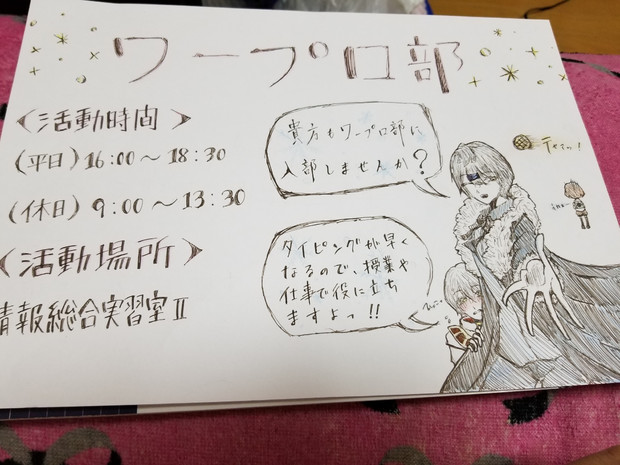 ワープロ部
〈活動時間〉
(平日)16:00〜18:30
(休日)9:00〜13:30
〈活動場所〉
情報総合実習室Ⅱ
貴方もワープロ部に
入部しませんか?
タイピングが早く
なるので、授業や
仕事で役に立ち
ますよっ!!